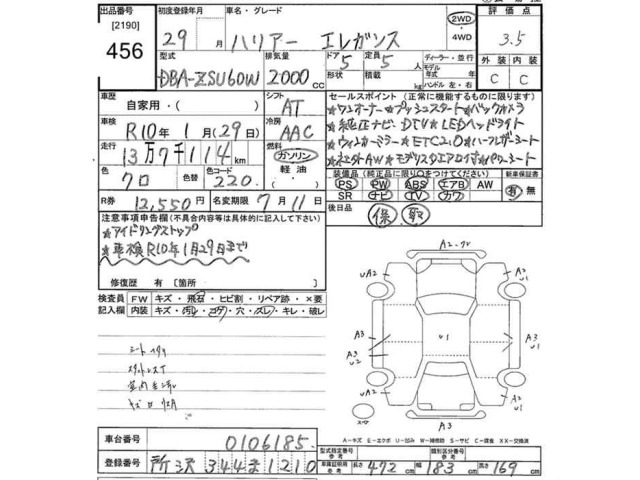 出品番号
[2190]
456
初度登録年月
29 月
車名・グレード
ハリアー エレガンス
2WD
4WD
評価点
3.5
型式
DBA-ZSU60W
排気量
2000 cc
ドア
5
形状
定員
5 人
積載
kg
ディーラー・並行
モデル
年式 年
ハンドル 左・右
外装 内装
C C
車歴
自家用・( )
シフト
AT
車検
R10年 1月(29日)
冷房
AAC
走行
13万7千114 km
燃料
ガソリン
軽油
( )
色
クロ
色替
色コード
220
R券
12,550円
名変期限
7月11日
セールスポイント (正常に機能するものに限ります)
★ワンオーナー★プッシュスタート★バックカメラ
★純正ナビ DTV★LEDヘッドライト
★ウィンカーミラー★ETC2.0★ハーフレザーシート
装備品(純正品に限り○をつけてください)
PS PW ABS エアB AW
SR ナビ TV カワ
新車保証書
有 無
後日品
保 取
注意事項申告欄(不具合内容等は具体的に記入して下さい)
★アイドリングストップ
★車検R10年1月29日まで
修復歴 有 [箇所 ]
検査員
記入欄
FW キズ・飛石・ヒビ割・リペア跡・×要
内装 キズ・汚レ・コゲ・穴・スレ・キレ・破レ
UA2
A2
A2
U1
U1
A3
U2
A3
U1
UA2
A2
U1
A3
A-キズ E-エクボ U-凹み W-補修跡 S-サビ C-腐食 XX-交換済
車台番号
0106185
登録番号
所沢 344 ま 1210
型式指定番号
参考
類別区分番号
参考
車庫証明用
参考
長さ 472 cm 幅 183 cm 高さ 169 cm